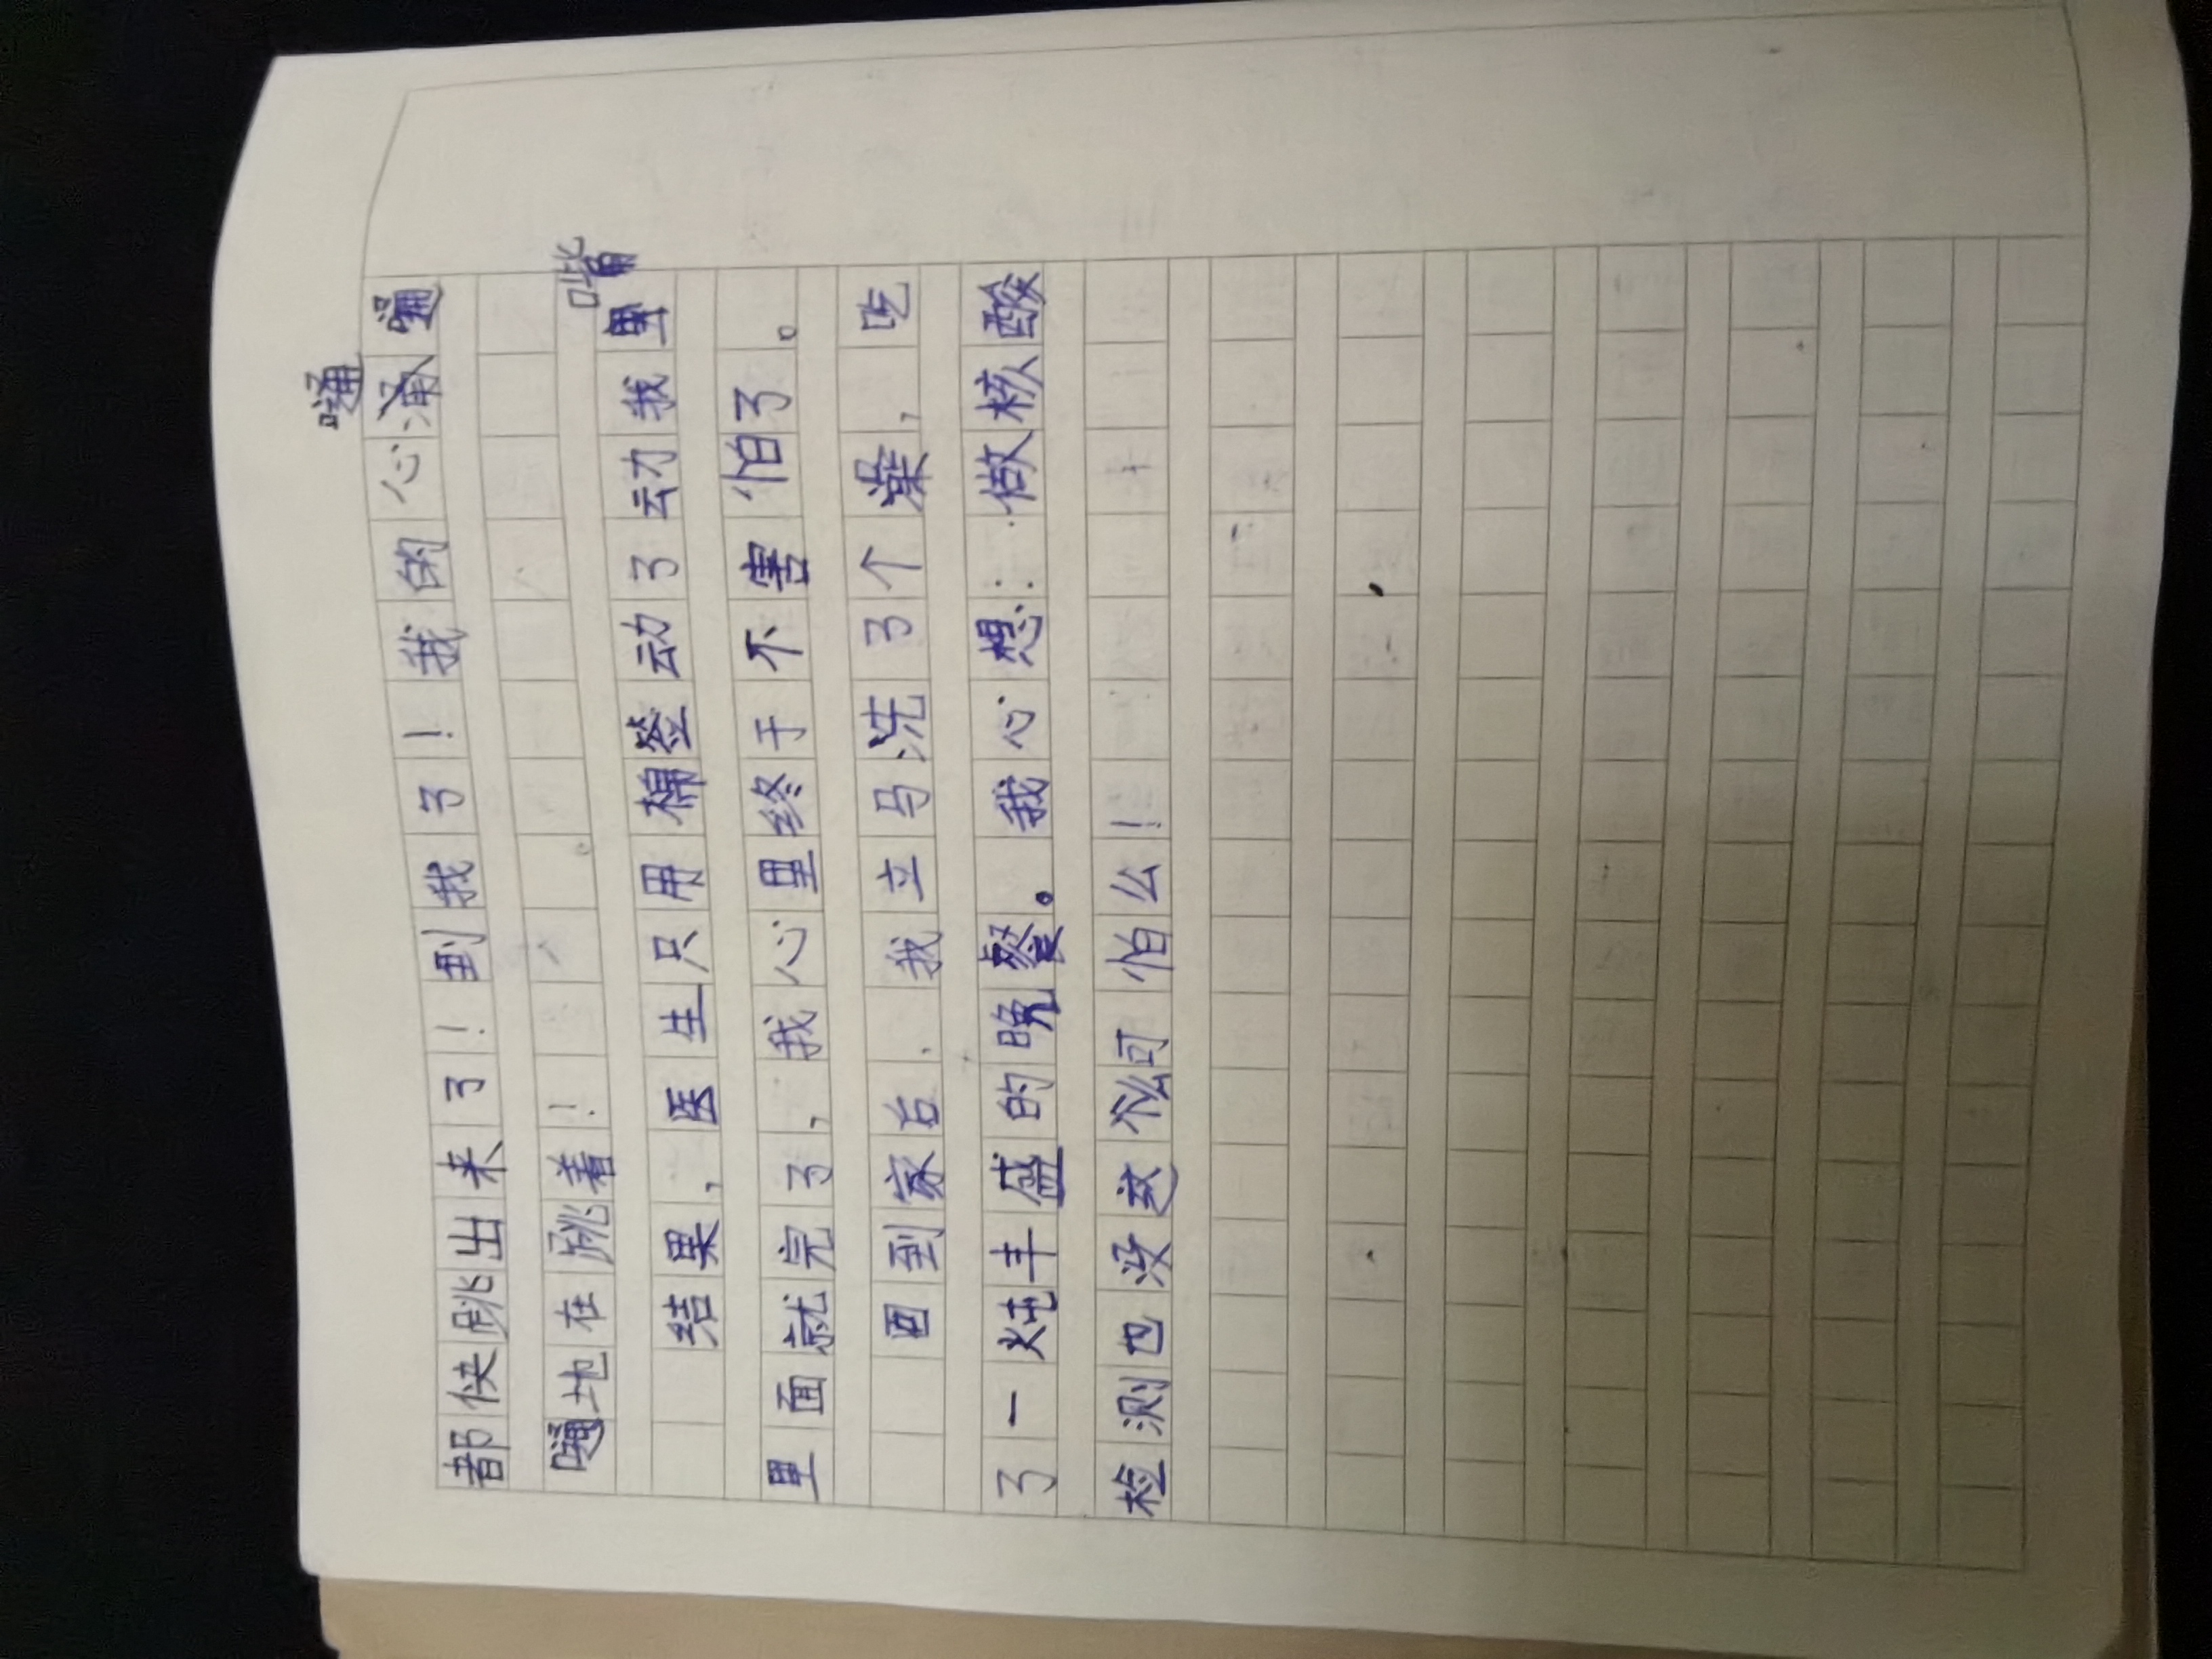 都快跳出来了!到我了!我的心嗵嗵
嗵地在跳着!
结果,医生只用棉签动了动我嘴
里面就完了,我心里终于不害怕了。
回到家后,我立马洗了个澡,吃
了一炖丰盛的晚餐。我心想:做核酸
检测也没这么可怕么!